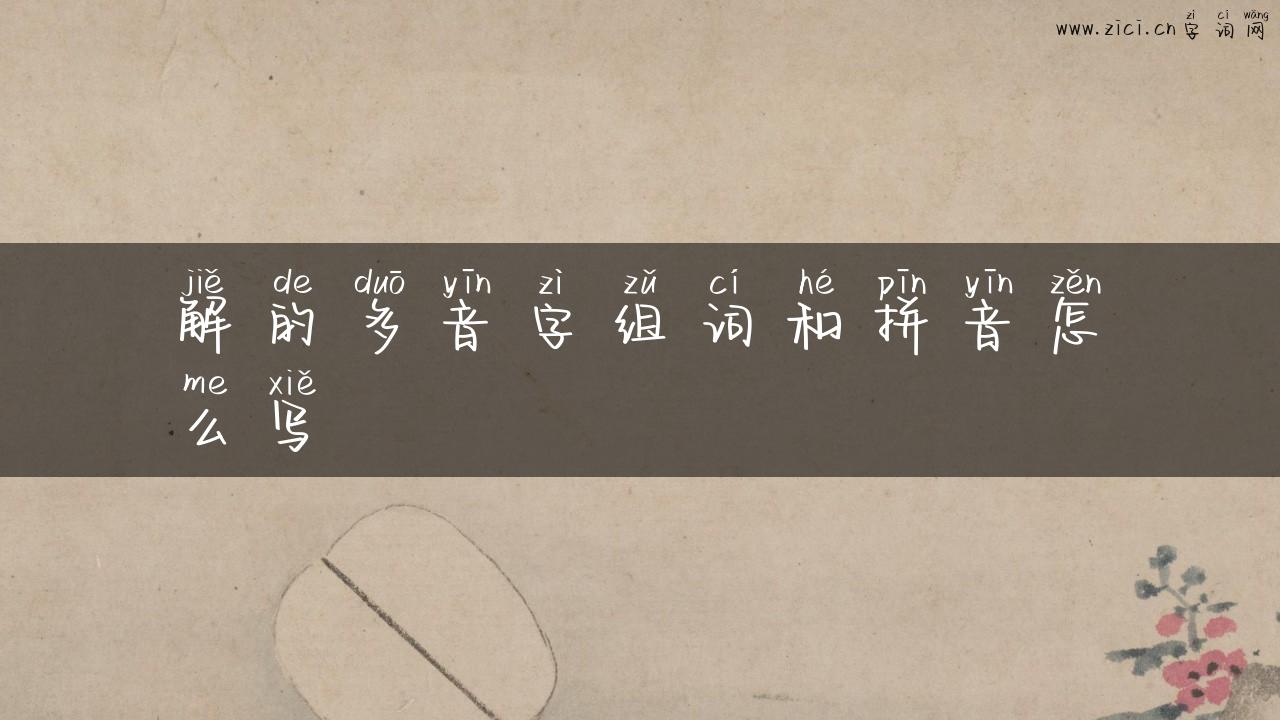 zì cí wǎng
www.zici.cn 字词网
jiě de duō yīn zì zǔ cí hé pīn yīn zěn
解的多音字组词和拼音怎
me xiě
么写